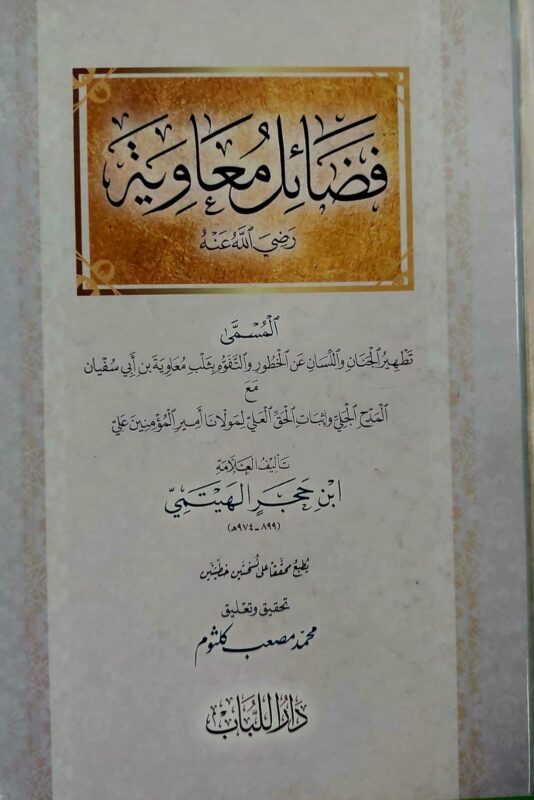 فَضَائِل مُعَاوِيَة
رَضِيَ ٱللَّهُ عَنْهُ
ٱلْمُسَمَّىٰ
تَطْهِيرُ الْجَنَانِ وَاللِّسَانِ عَنِ الْخُطُورِ وَالتَّفَوُّهِ بِثَلْبِ مُعَاوِيَةَ بنِ أَبِي سُفْيَان
مَعَ
الْمَدْحِ الْجَلِيِّ وَإِثْبَاتِ الْحَقِّ الْعَلِيِّ لِمَوْلَانَا أَمِيرِ الْمُؤْمِنِينَ عَلِيّ
تَأْلِيفُ الْعَلَّامَةِ
ابْنِ حَجَرٍ الْهَيْتَمِيِّ
(٨٩٩ - ٩٧٤ هـ)
يُطْبَعُ محقَّقاً على نُسْخَتَينِ خطِّيَّتَين
تحقيق وتعليق
محمّد مصعب كلثوم
دَارُ اللُّبَابِ